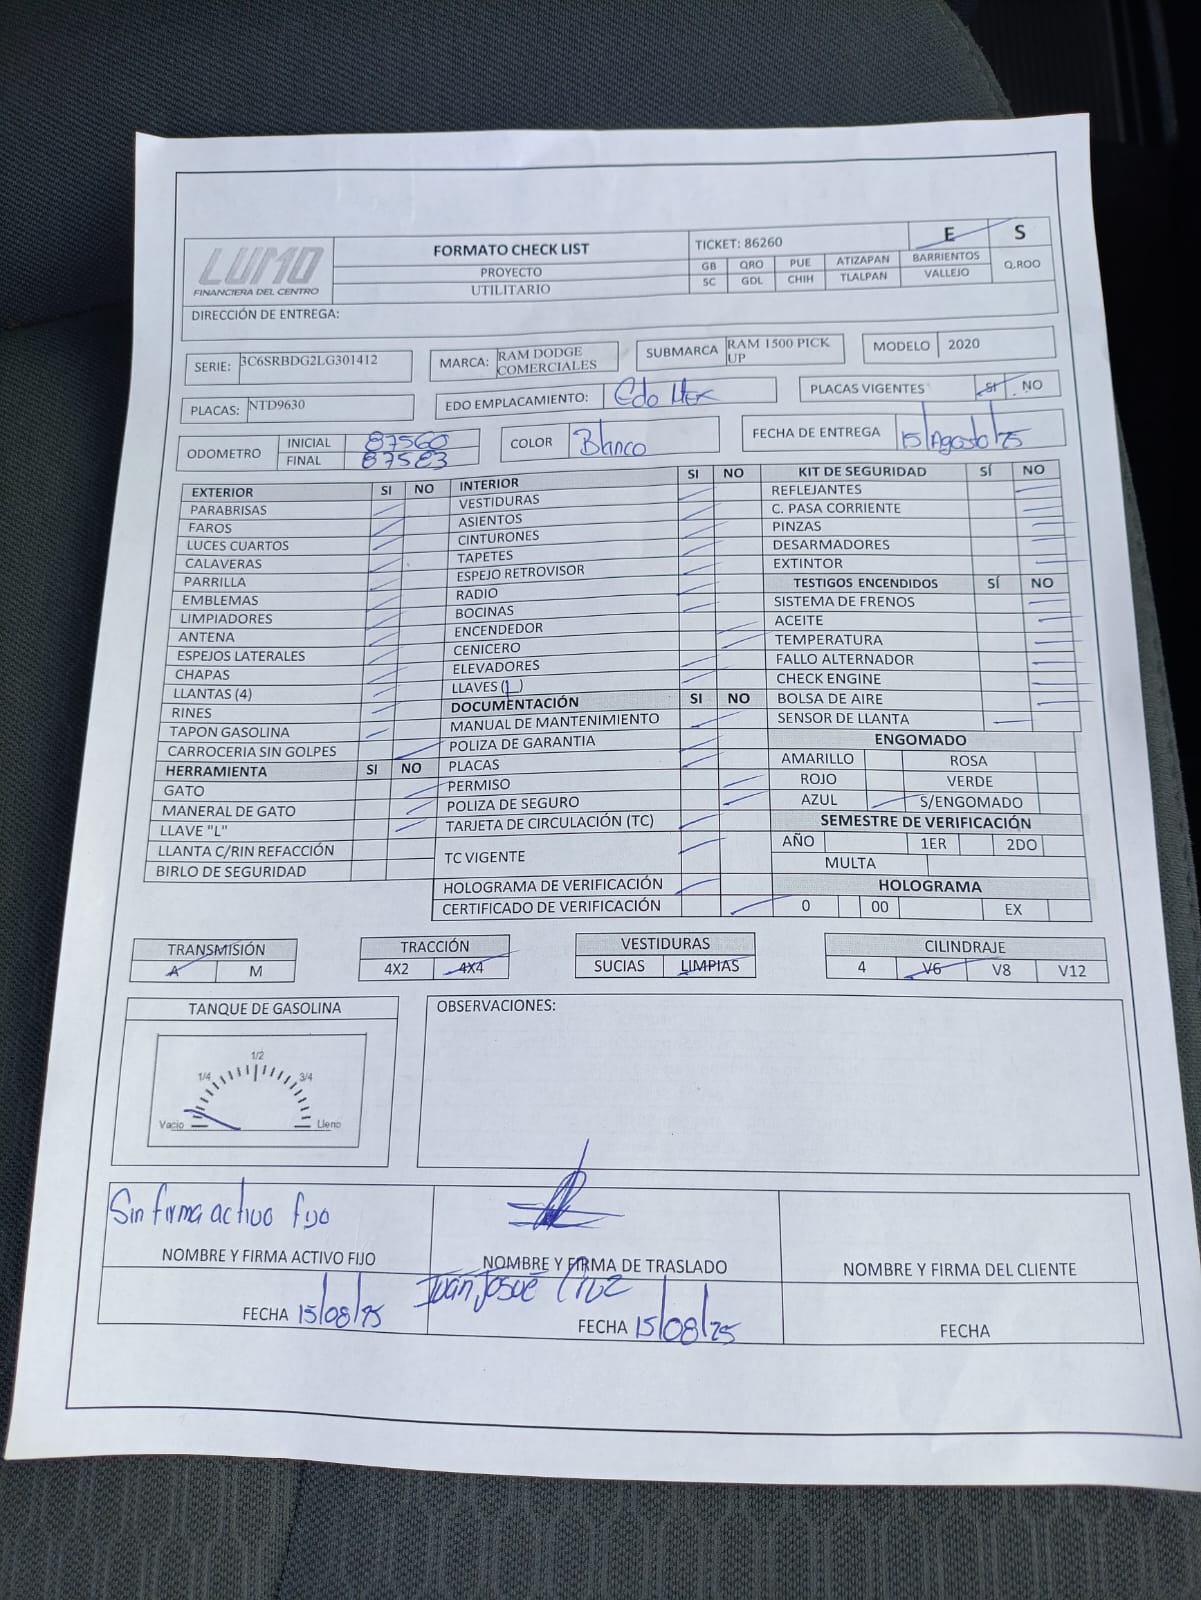 LUMO
FINANCIERA DEL CENTRO
FORMATO CHECK LIST
PROYECTO
UTILITARIO
TICKET: 86260 E S
GB QRO PUE ATIZAPAN BARRIENTOS Q.ROO
SC GDL CHIH TLALPAN VALLEJO
DIRECCIÓN DE ENTREGA:
SERIE: 3C6SRBDG2LG301412 MARCA: RAM DODGE COMERCIALES SUBMARCA RAM 1500 PICK UP MODELO 2020
PLACAS: NTD9630 EDO EMPLACAMIENTO: Edo Mex PLACAS VIGENTES SI NO
ODOMETRO INICIAL 87560 COLOR Blanco FECHA DE ENTREGA 15/Agosto/25
FINAL 87583
EXTERIOR SI NO
PARABRISAS
FAROS
LUCES CUARTOS
CALAVERAS
PARRILLA
EMBLEMAS
LIMPIADORES
ANTENA
ESPEJOS LATERALES
CHAPAS
LLANTAS (4)
RINES
TAPON GASOLINA
CARROCERIA SIN GOLPES
HERRAMIENTA SI NO
GATO
MANERAL DE GATO
LLAVE "L"
LLANTA C/RIN REFACCIÓN
BIRLO DE SEGURIDAD
INTERIOR SI NO
VESTIDURAS
ASIENTOS
CINTURONES
TAPETES
ESPEJO RETROVISOR
RADIO
BOCINAS
ENCENDEDOR
CENICERO
ELEVADORES
LLAVES (1)
DOCUMENTACIÓN SI NO
MANUAL DE MANTENIMIENTO
POLIZA DE GARANTIA
PLACAS
PERMISO
POLIZA DE SEGURO
TARJETA DE CIRCULACIÓN (TC)
TC VIGENTE
HOLOGRAMA DE VERIFICACIÓN
CERTIFICADO DE VERIFICACIÓN
KIT DE SEGURIDAD SÍ NO
REFLEJANTES
C. PASA CORRIENTE
PINZAS
DESARMADORES
EXTINTOR
TESTIGOS ENCENDIDOS SÍ NO
SISTEMA DE FRENOS
ACEITE
TEMPERATURA
FALLO ALTERNADOR
CHECK ENGINE
BOLSA DE AIRE
SENSOR DE LLANTA
ENGOMADO
AMARILLO ROSA
ROJO VERDE
AZUL S/ENGOMADO
SEMESTRE DE VERIFICACIÓN
AÑO 1ER 2DO
MULTA
HOLOGRAMA
0 00 EX
TRANSMISIÓN
A M
TRACCIÓN
4X2 4X4
VESTIDURAS
SUCIAS LIMPIAS
CILINDRAJE
4 V6 V8 V12
TANQUE DE GASOLINA
1/2
1/4 3/4
Vacio Lleno
OBSERVACIONES:
Sin firma activo fijo
NOMBRE Y FIRMA ACTIVO FIJO
FECHA 15/08/25
NOMBRE Y FIRMA DE TRASLADO
Iván Josué Cruz
FECHA 15/08/25
NOMBRE Y FIRMA DEL CLIENTE
FECHA